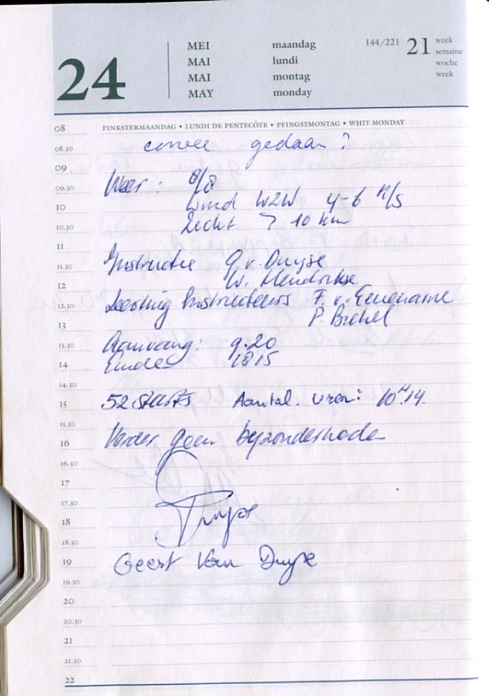 24
MEI maandag
MAI lundi
MAI montag
MAY monday
144/221 21 week
semaine
woche
week
PINKSTERMAANDAG • LUNDI DE PENTECÔTE • PFINGSTMONTAG • WHIT MONDAY
08
08.30 corvee gedaan?
09
09.30 Weer: 8/8
10 wind WZW 4-6 M/S
10.30 Zicht > 10 km
11
11.30 Instructie G. v. Duyse
12 W. Hendrikse
12.30 Leerling Instructeurs F. v.
13 P. Brekel
13.30 Aanvang: 9.20
14 Einde:
14.30
15 52 starts Aantal uren: 10H 14
15.30
16 Verder geen bijzonderheden
16.30
17
17.30
18 Duyse
18.30
19 Geert Van Duyse
19.30
20
20.30
21
21.30
22